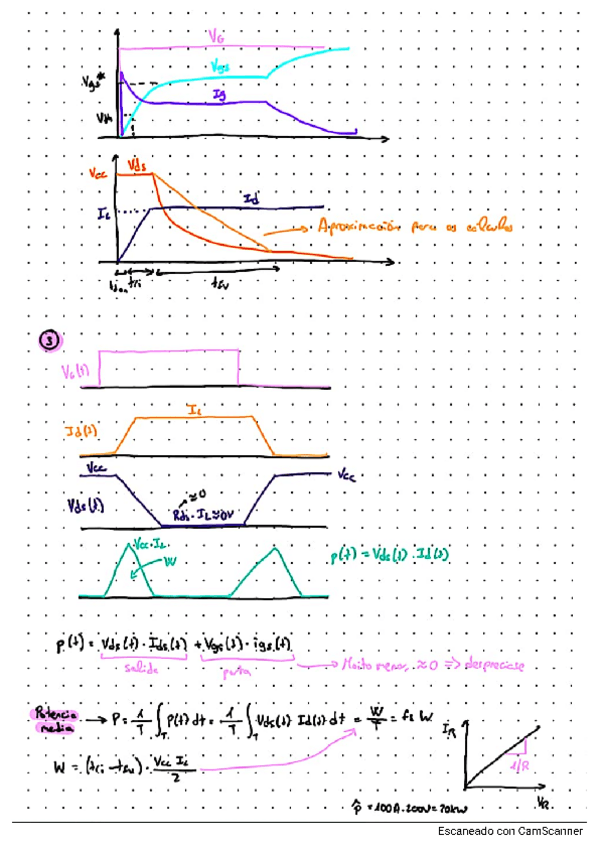 VG
Vgs*
Vgs
Ig
Vth
Vcc
Vds
IL
Id
Aproximación para os cálculos
tdon tri tfv
3
VG(t)
IL
Id(t)
Vcc
Vcc
≈0
Vds(t)
Rds · IL ≈ 0V
Vcc · IL
W
p(t) = Vds(t) · Id(t)
p(t) = Vds(t) · Ids(t) + Vgs(t) · igs(t)
salida
porta
Moito menor, ≈ 0 => despréciase
Potencia media → P = 1/T ∫T P(t) dt = 1/T ∫T Vds(t) Id(t) dt = W/T = fs W
W = (tri - tfv) · Vcc IL / 2
IR
1/R
VR
p̂ = 100A · 200V = 20kW
Escaneado con CamScanner